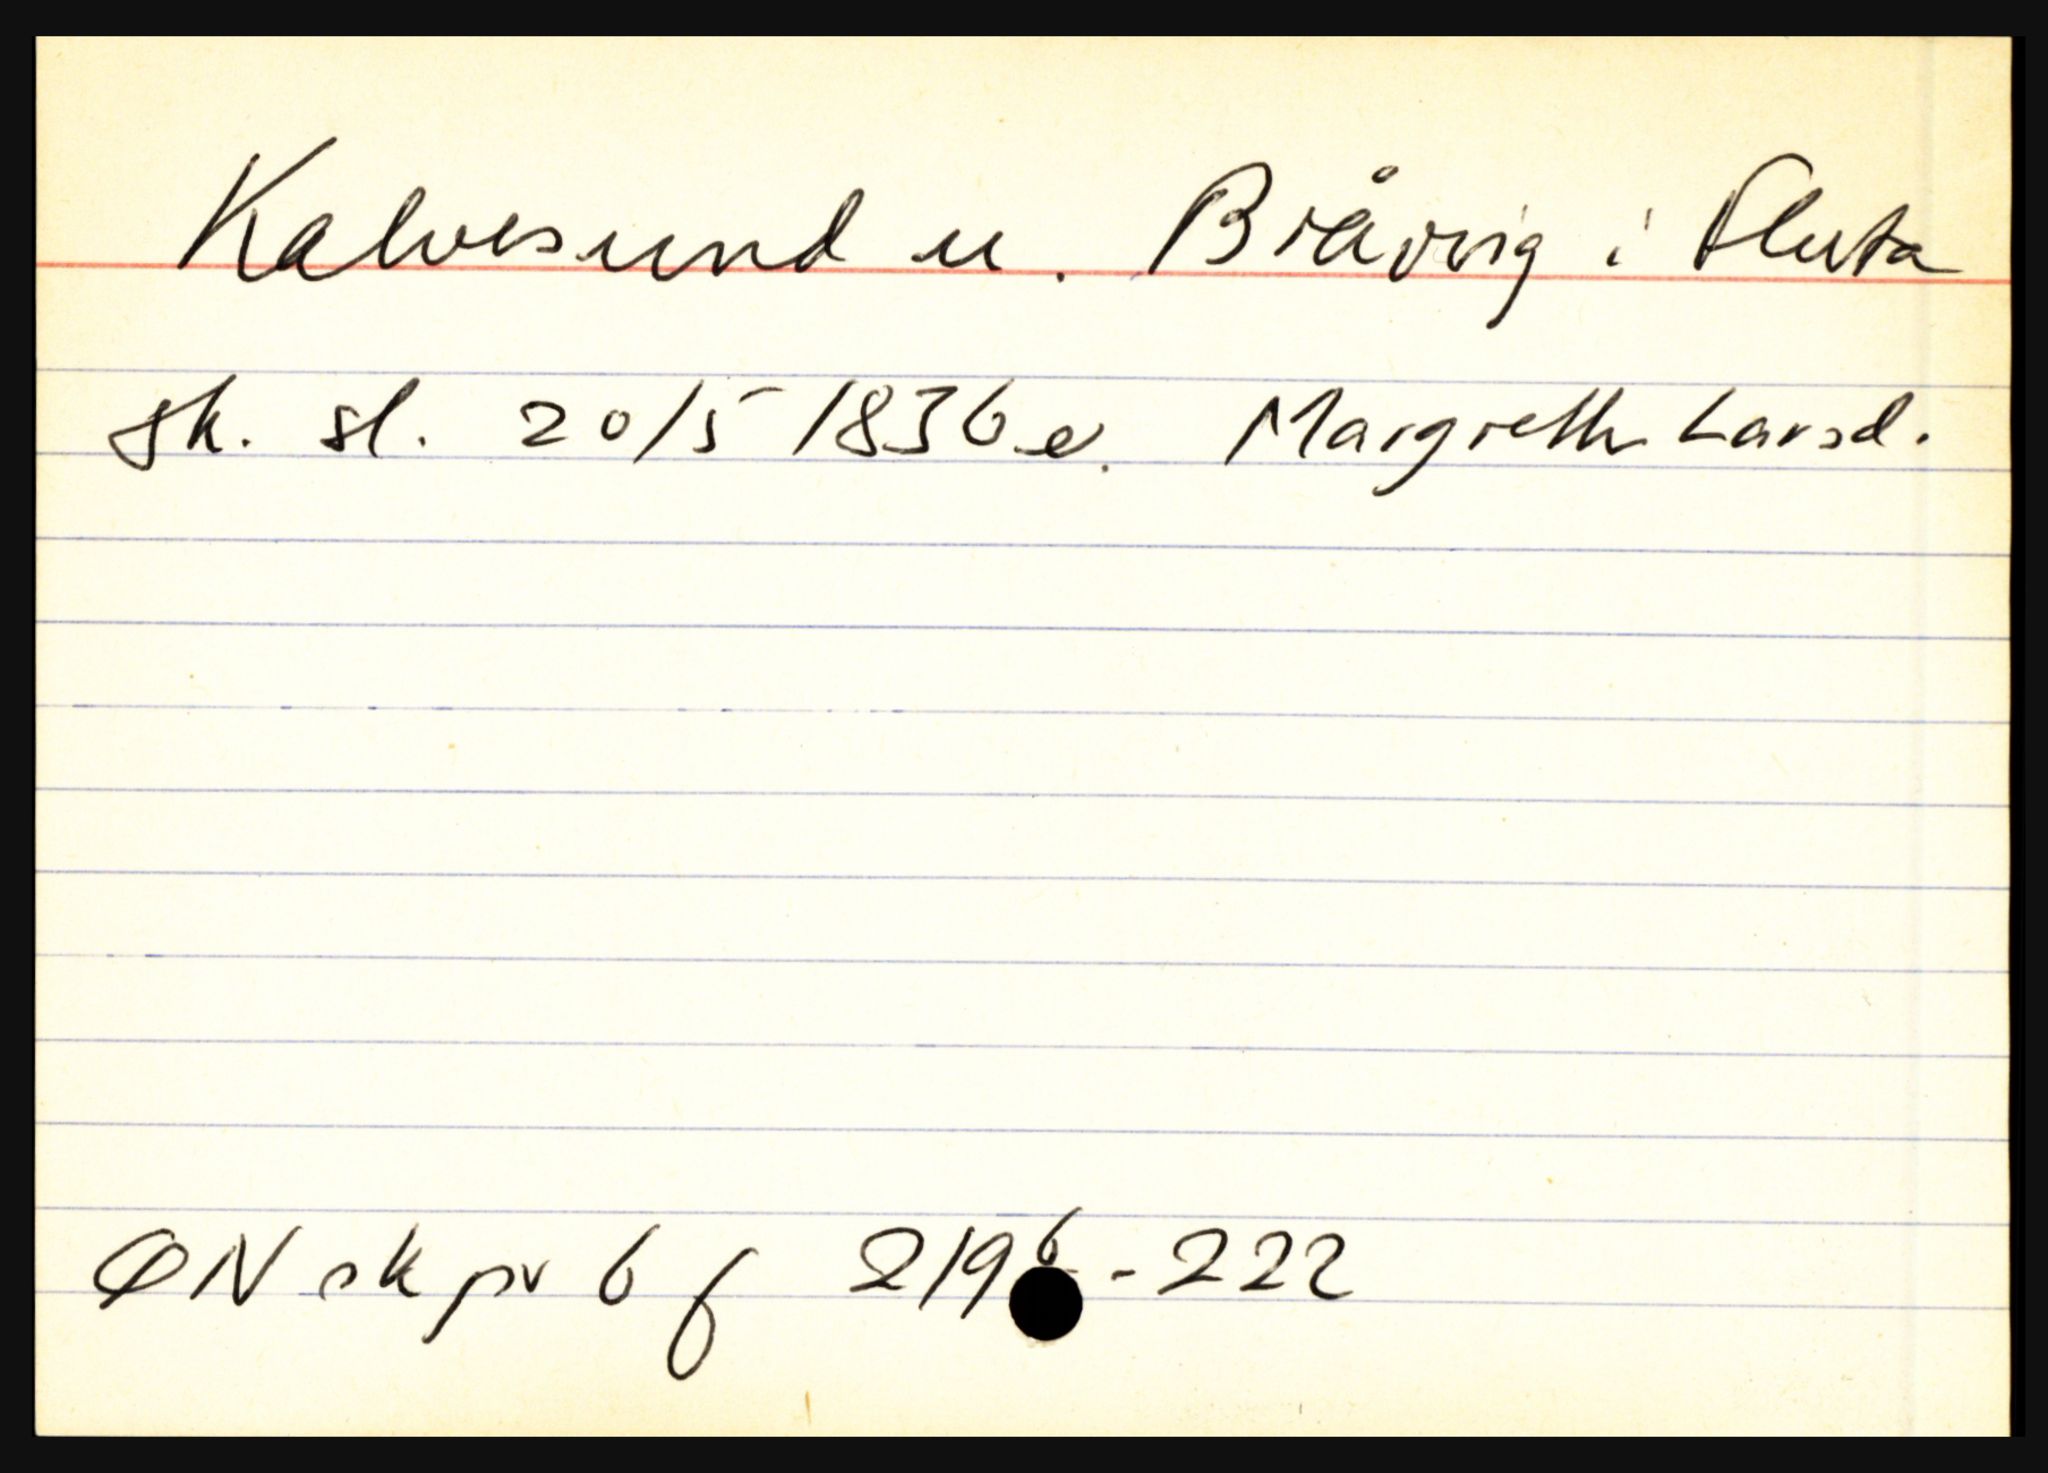 Kalvesund u. Bråvig i Flosta
sk. sl. 20/5 1836 e. Margreth Larsd.
ØN sk pr 6 f 219b - 222